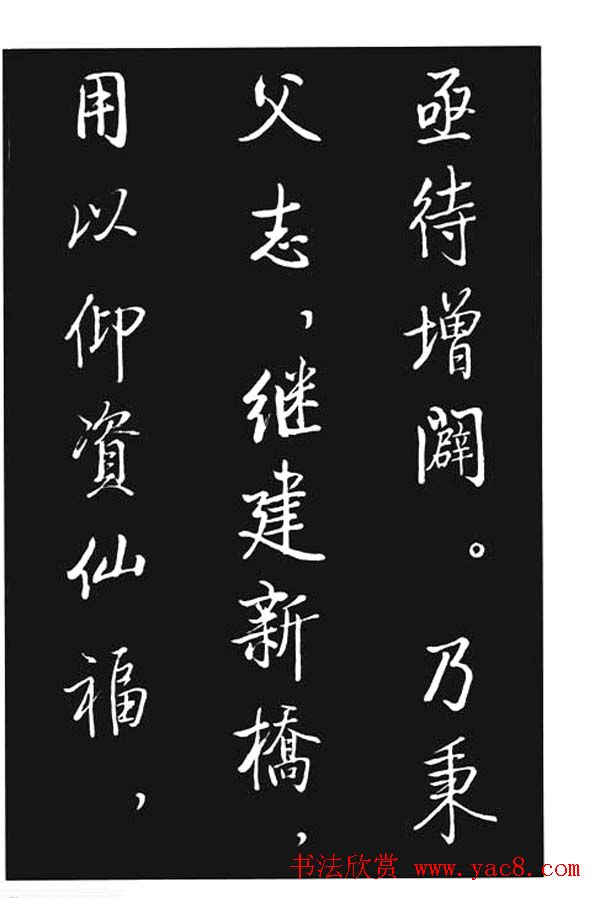 亟待增闢。乃秉
父志，继建新橋，
用以仰資仙福，
书法欣赏 www.yac8.com